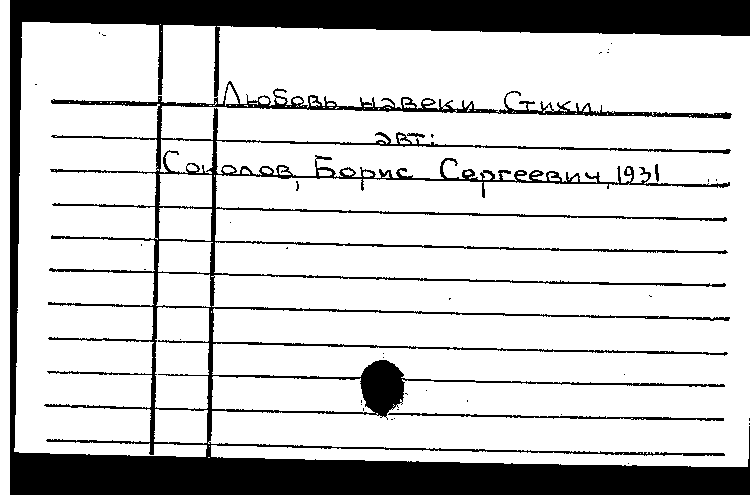 Любовь навеки Стихи.
авт:
Соколов, Борис Сергеевич, 1931